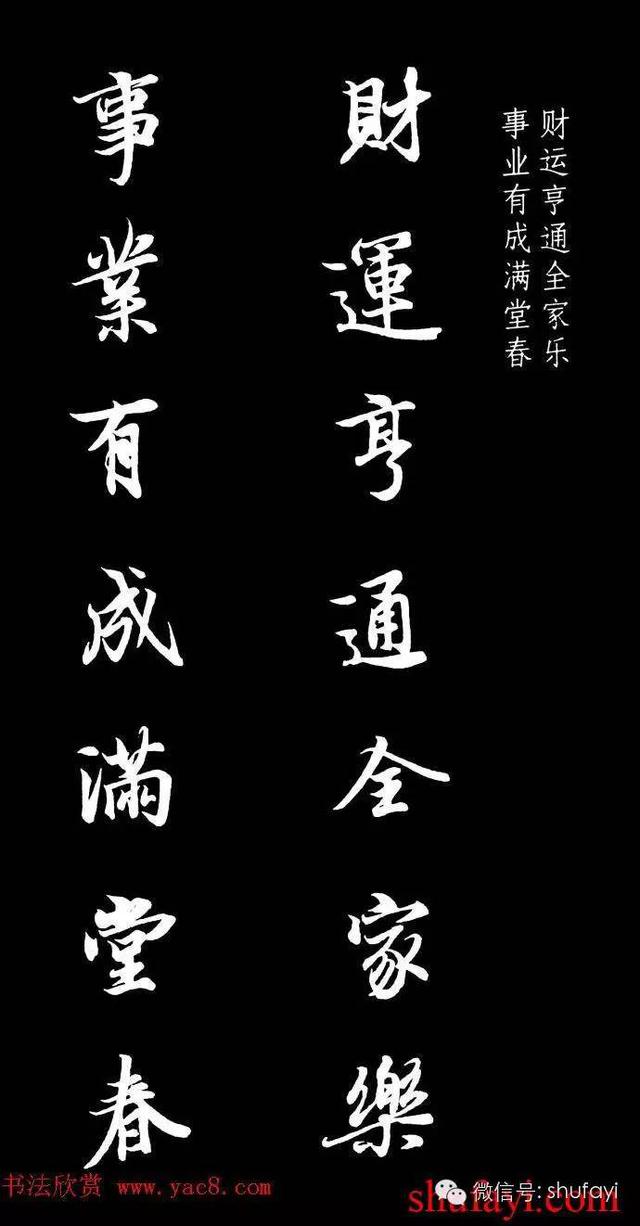 财运亨通全家乐
事业有成满堂春
財運亨通全家樂
事業有成滿堂春
书法欣赏 www.yac8.com
shufayi.com
微信号: shufayi